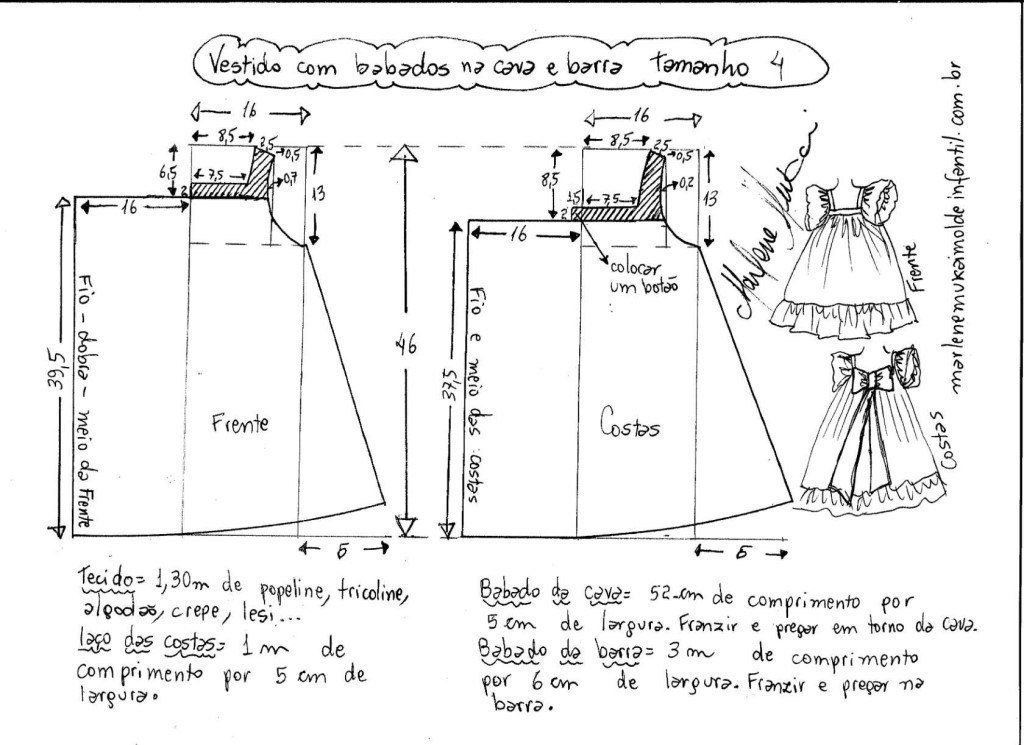 Vestido com babados na cava e barra tamanho 4
16
8,5
2,5
0,5
6,5
7,5
0,7
2
13
16
39,5
Fio - dobra - meio da Frente
Frente
5
46
16
8,5
2,5
0,5
8,5
1,5
7,5
0,2
2
13
16
colocar
um botão
37,5
Fio e meio das costas
Costas
5
Marlene Mukai
Frente
Costas
marlenemukaimoldeinfantil.com.br
Tecido = 1,30m de popeline, tricoline,
algodão, crepe, lesi...
laço das costas = 1 m de
comprimento por 5 cm de
largura.
Babado da cava = 52 cm de comprimento por
5 cm de largura. Franzir e pregar em torno da cava.
Babado da barra = 3 m de comprimento
por 6 cm de largura. Franzir e pregar na
barra.